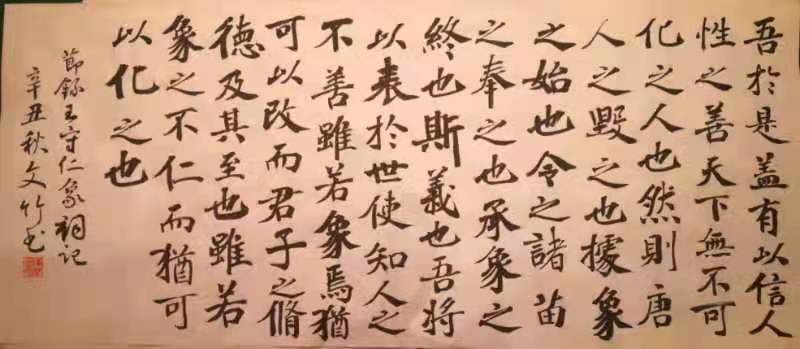 吾於是盖有以信人
性之善天下無不可
化之人也然則唐
人之毀之也據象
之始也今之諸苗
之奉之也承象之
終也斯義也吾將
以表於世使知人之
不善雖若象焉猶
可以改而君子之脩
德及其至也雖若
象之不仁而猶可
以化之也
節錄王守仁象祠記
辛丑秋文竹书